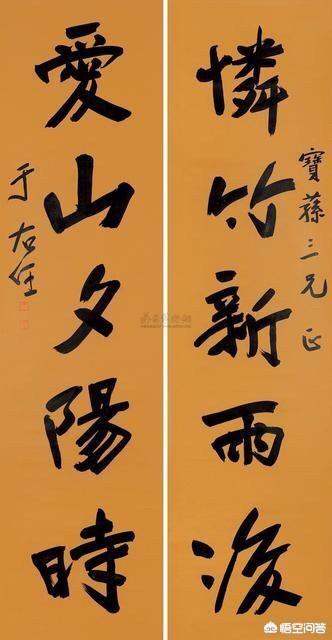 寶蓀三兄正
憐竹新雨後
愛山夕陽時
于右任
悟空问答